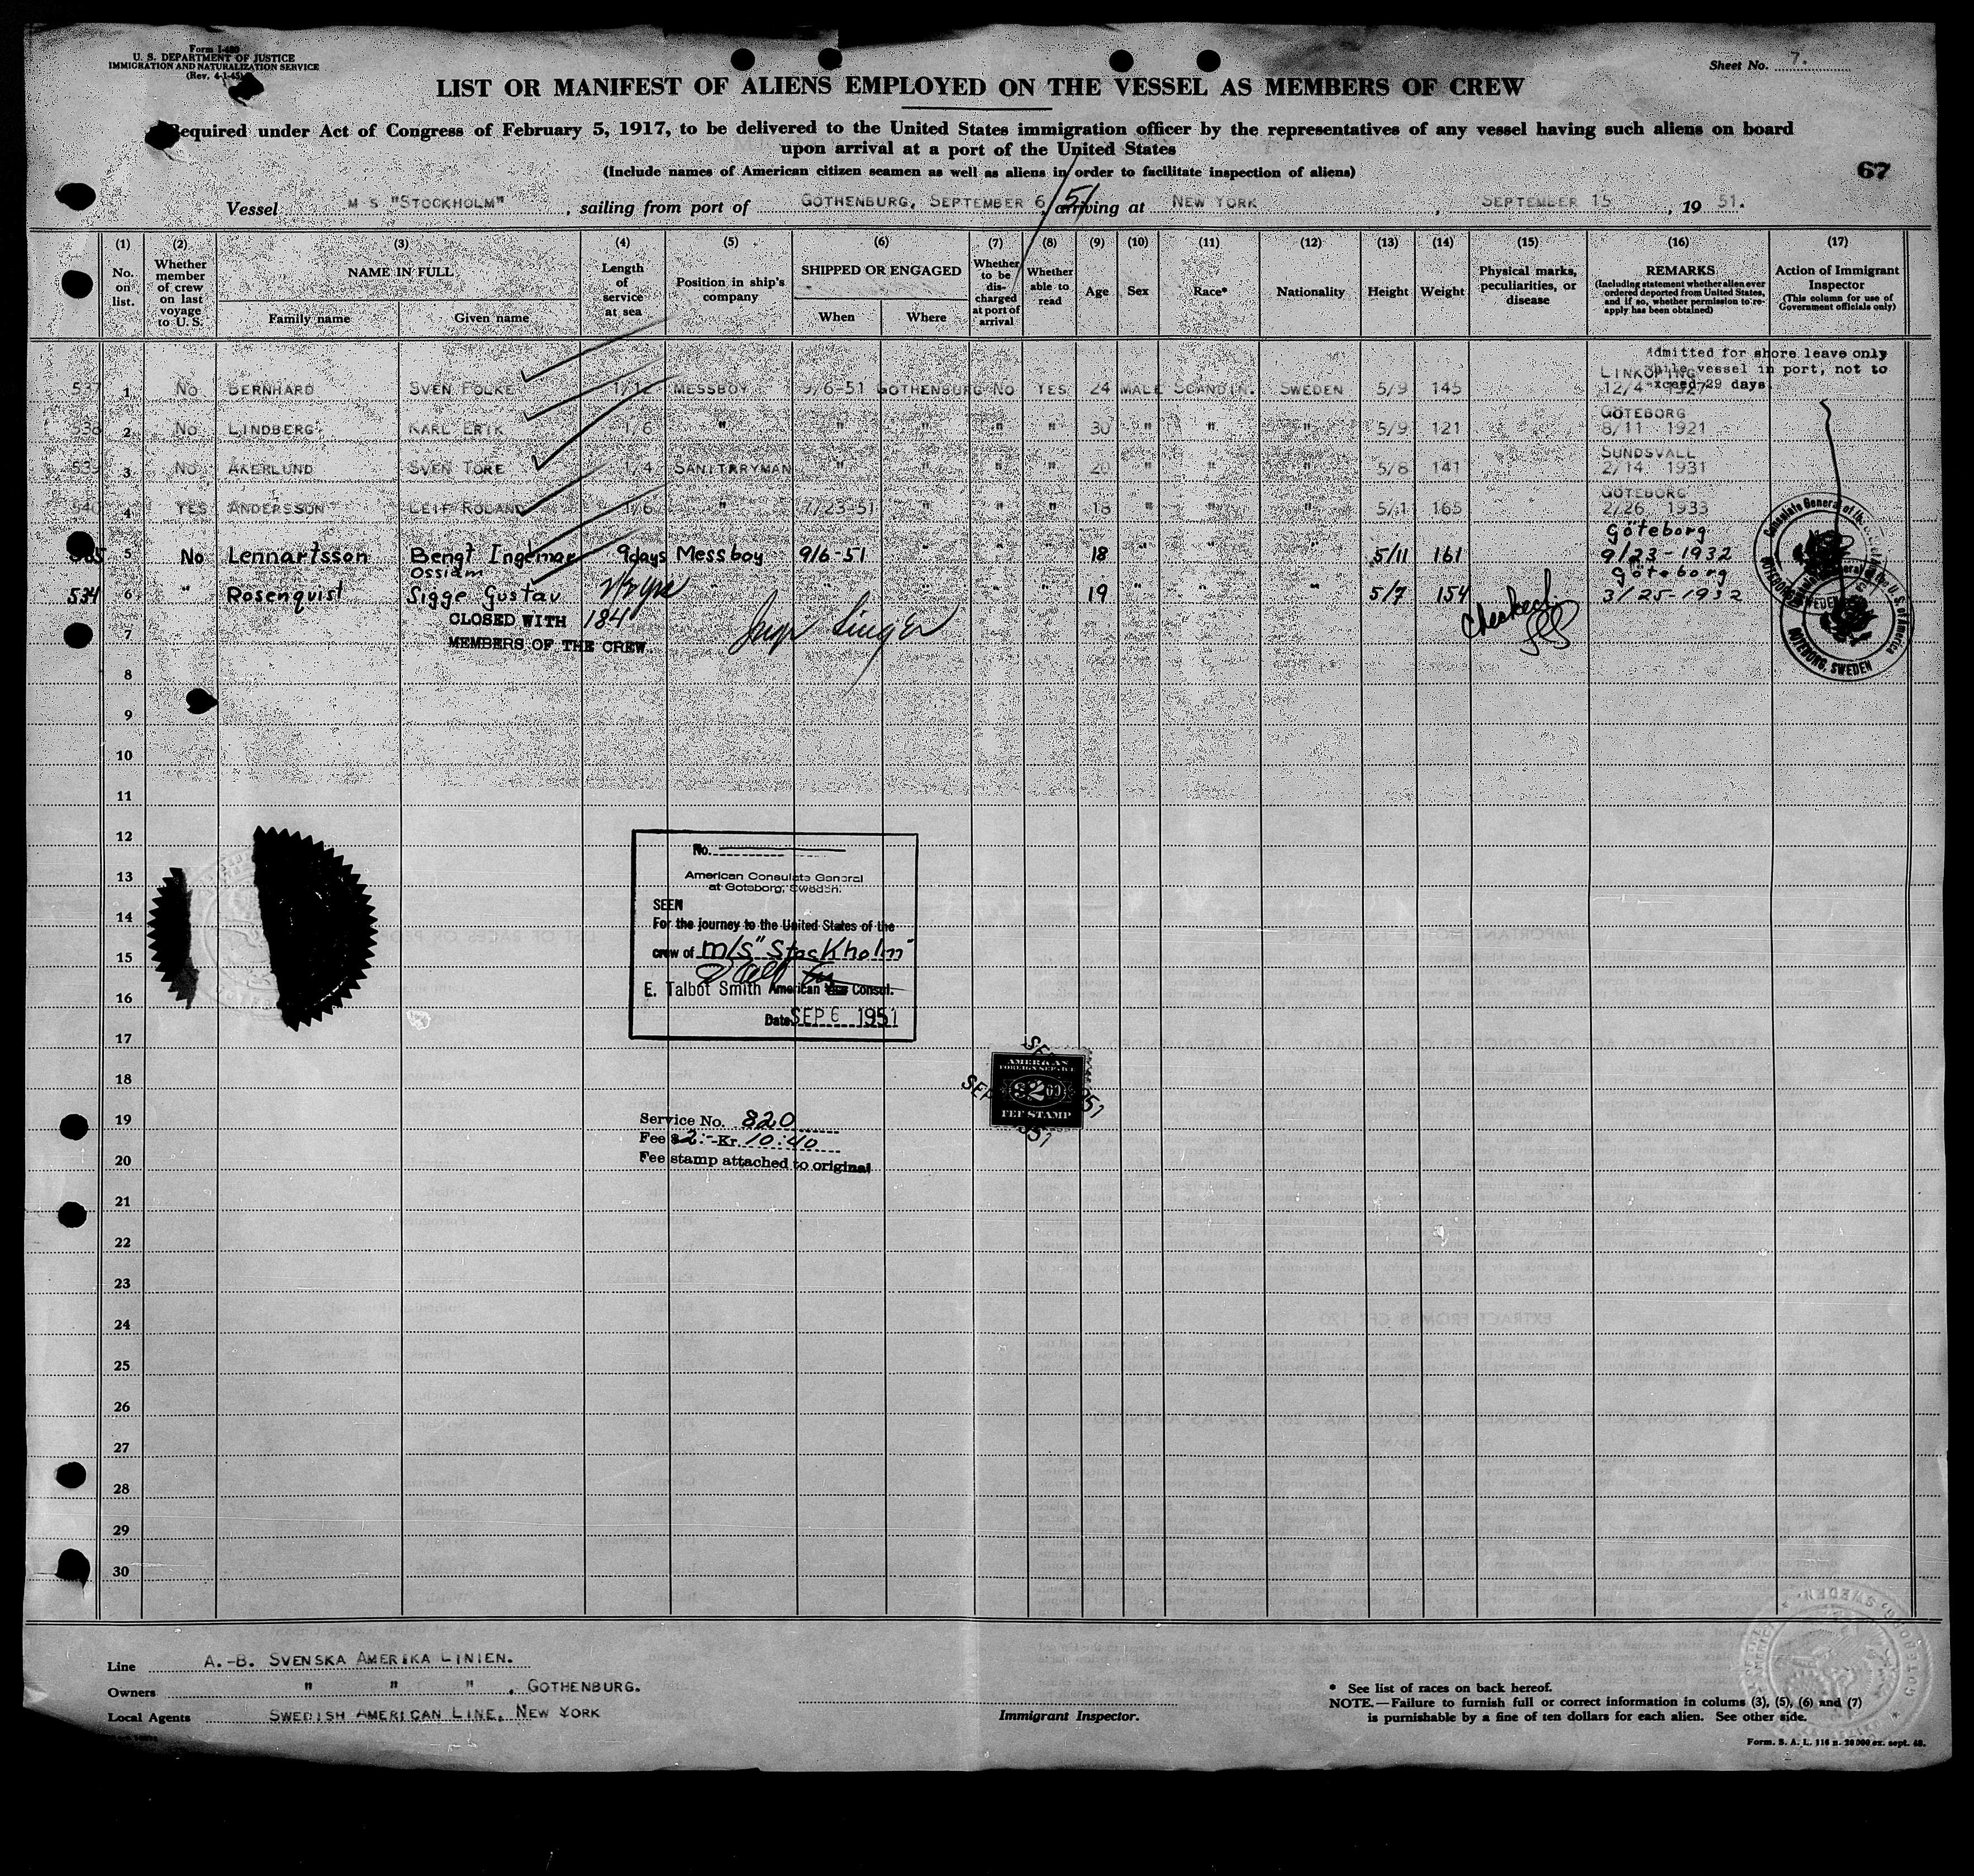 Form I-480
U. S. DEPARTMENT OF JUSTICE
IMMIGRATION AND NATURALIZATION SERVICE
(Rev. 4-1-45)
Sheet No. 7.
LIST OR MANIFEST OF ALIENS EMPLOYED ON THE VESSEL AS MEMBERS OF CREW
Required under Act of Congress of February 5, 1917, to be delivered to the United States immigration officer by the representatives of any vessel having such aliens on board
upon arrival at a port of the United States
(Include names of American citizen seamen as well as aliens in order to facilitate inspection of aliens)
67
Vessel M S "STOCKHOLM", sailing from port of GOTHENBURG, SEPTEMBER 6, 51 arriving at NEW YORK, SEPTEMBER 15, 19 51.
(1) (2) (3) (4) (5) (6) (7) (8) (9) (10) (11) (12) (13) (14) (15) (16) (17)
No. on list.
Whether member of crew on last voyage to U. S.
NAME IN FULL
Family name
Given name
Length of service at sea
Position in ship's company
SHIPPED OR ENGAGED
When
Where
Whether to be discharged at port of arrival
Whether able to read
Age
Sex
Race*
Nationality
Height
Weight
Physical marks, peculiarities, or disease
REMARKS
(Including statement whether alien ever ordered deported from United States, and if so, whether permission to reapply has been obtained)
Action of Immigrant Inspector
(This column for use of Government officials only)
Admitted for shore leave only
while vessel in port, not to
exceed 29 days
537 1 NO BERNHARD SVEN FOLKE 1/12 MESSBOY 9/6-51 GOTHENBURG NO YES 24 MALE SCANDIN. SWEDEN 5/9 145 LINKÖPING 12/4 1927
538 2 NO LINDBERG. KARL ERIK 1/6 " " " " " 30 " " " 5/9 121 GÖTEBORG 8/11 1921
539 3 NO ÅKERLUND SVEN TORE 1/4 SANITARYMAN " " " " 20 " " " 5/8 141 SUNDSVALL 2/14 1931
540 4 YES ANDERSSON LEIF ROLAND 1/6 " 7/23-51 " " " 18 " " " 5/11 165 GÖTEBORG 2/26 1933
5 No Lennartsson Bengt Ingemar 9 days Messboy 9/6-51 " " " 18 " " " 5/11 161 Göteborg 9/23-1932
534 6 " Rosenquist Ossian Sigge Gustav " " " " " 19 " " " 5/7 154 Göteborg 3/25-1932
CLOSED WITH 184
MEMBERS OF THE CREW.
Checked
Consulate General of the U.S. of America
GOTEBORG, SWEDEN
7
8
9
10
11
12
13
14
15
16
17
18
19
20
21
22
23
24
25
26
27
28
29
30
No.
American Consulate General
at Goteborg, Sweden.
SEEN
For the journey to the United States of the
crew of m/s "Stockholm"
E. Talbot Smith American Vice Consul.
Date SEP 6 1951
AMERICAN
FOREIGN SERVICE
$2.00
FEE STAMP
Service No. 820
Fee $2:- Kr. 10:40
Fee stamp attached to original
Line A.-B. SVENSKA AMERIKA LINIEN.
Owners " " ", GOTHENBURG.
Local Agents SWEDISH AMERICAN LINE, NEW YORK
Immigrant Inspector.
* See list of races on back hereof.
NOTE.—Failure to furnish full or correct information in colums (3), (5), (6) and (7)
is purnishable by a fine of ten dollars for each alien. See other side.
Form. S. A. L. 116 n. 20 000 ex. sept. 48.